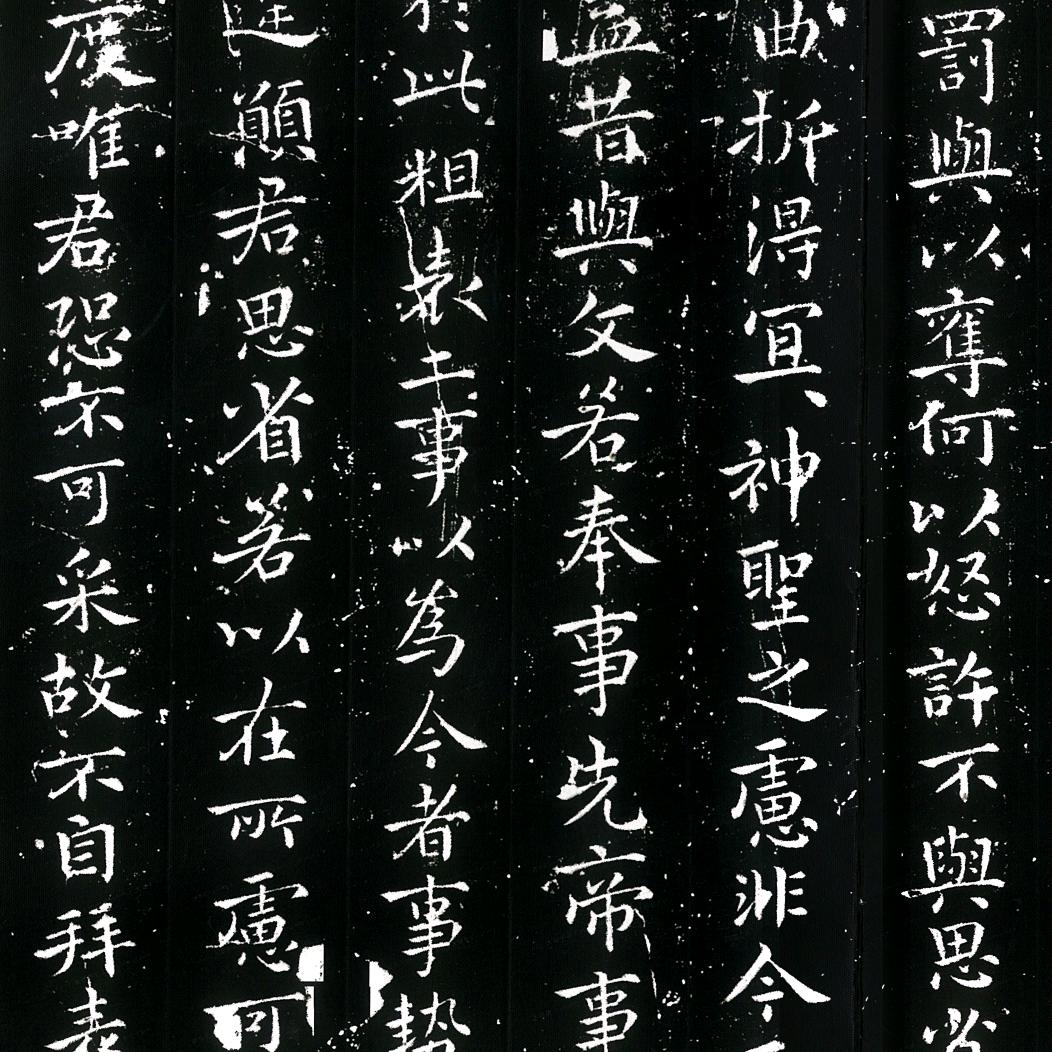 罰與以奪何以怒許不與思省
曲折得冝〻神聖之慮非今
益昔與文若奉事先帝事
於此粗表二事以為今者事勢
違願君思省若以在所慮可
度唯君恐不可采故不自拜表